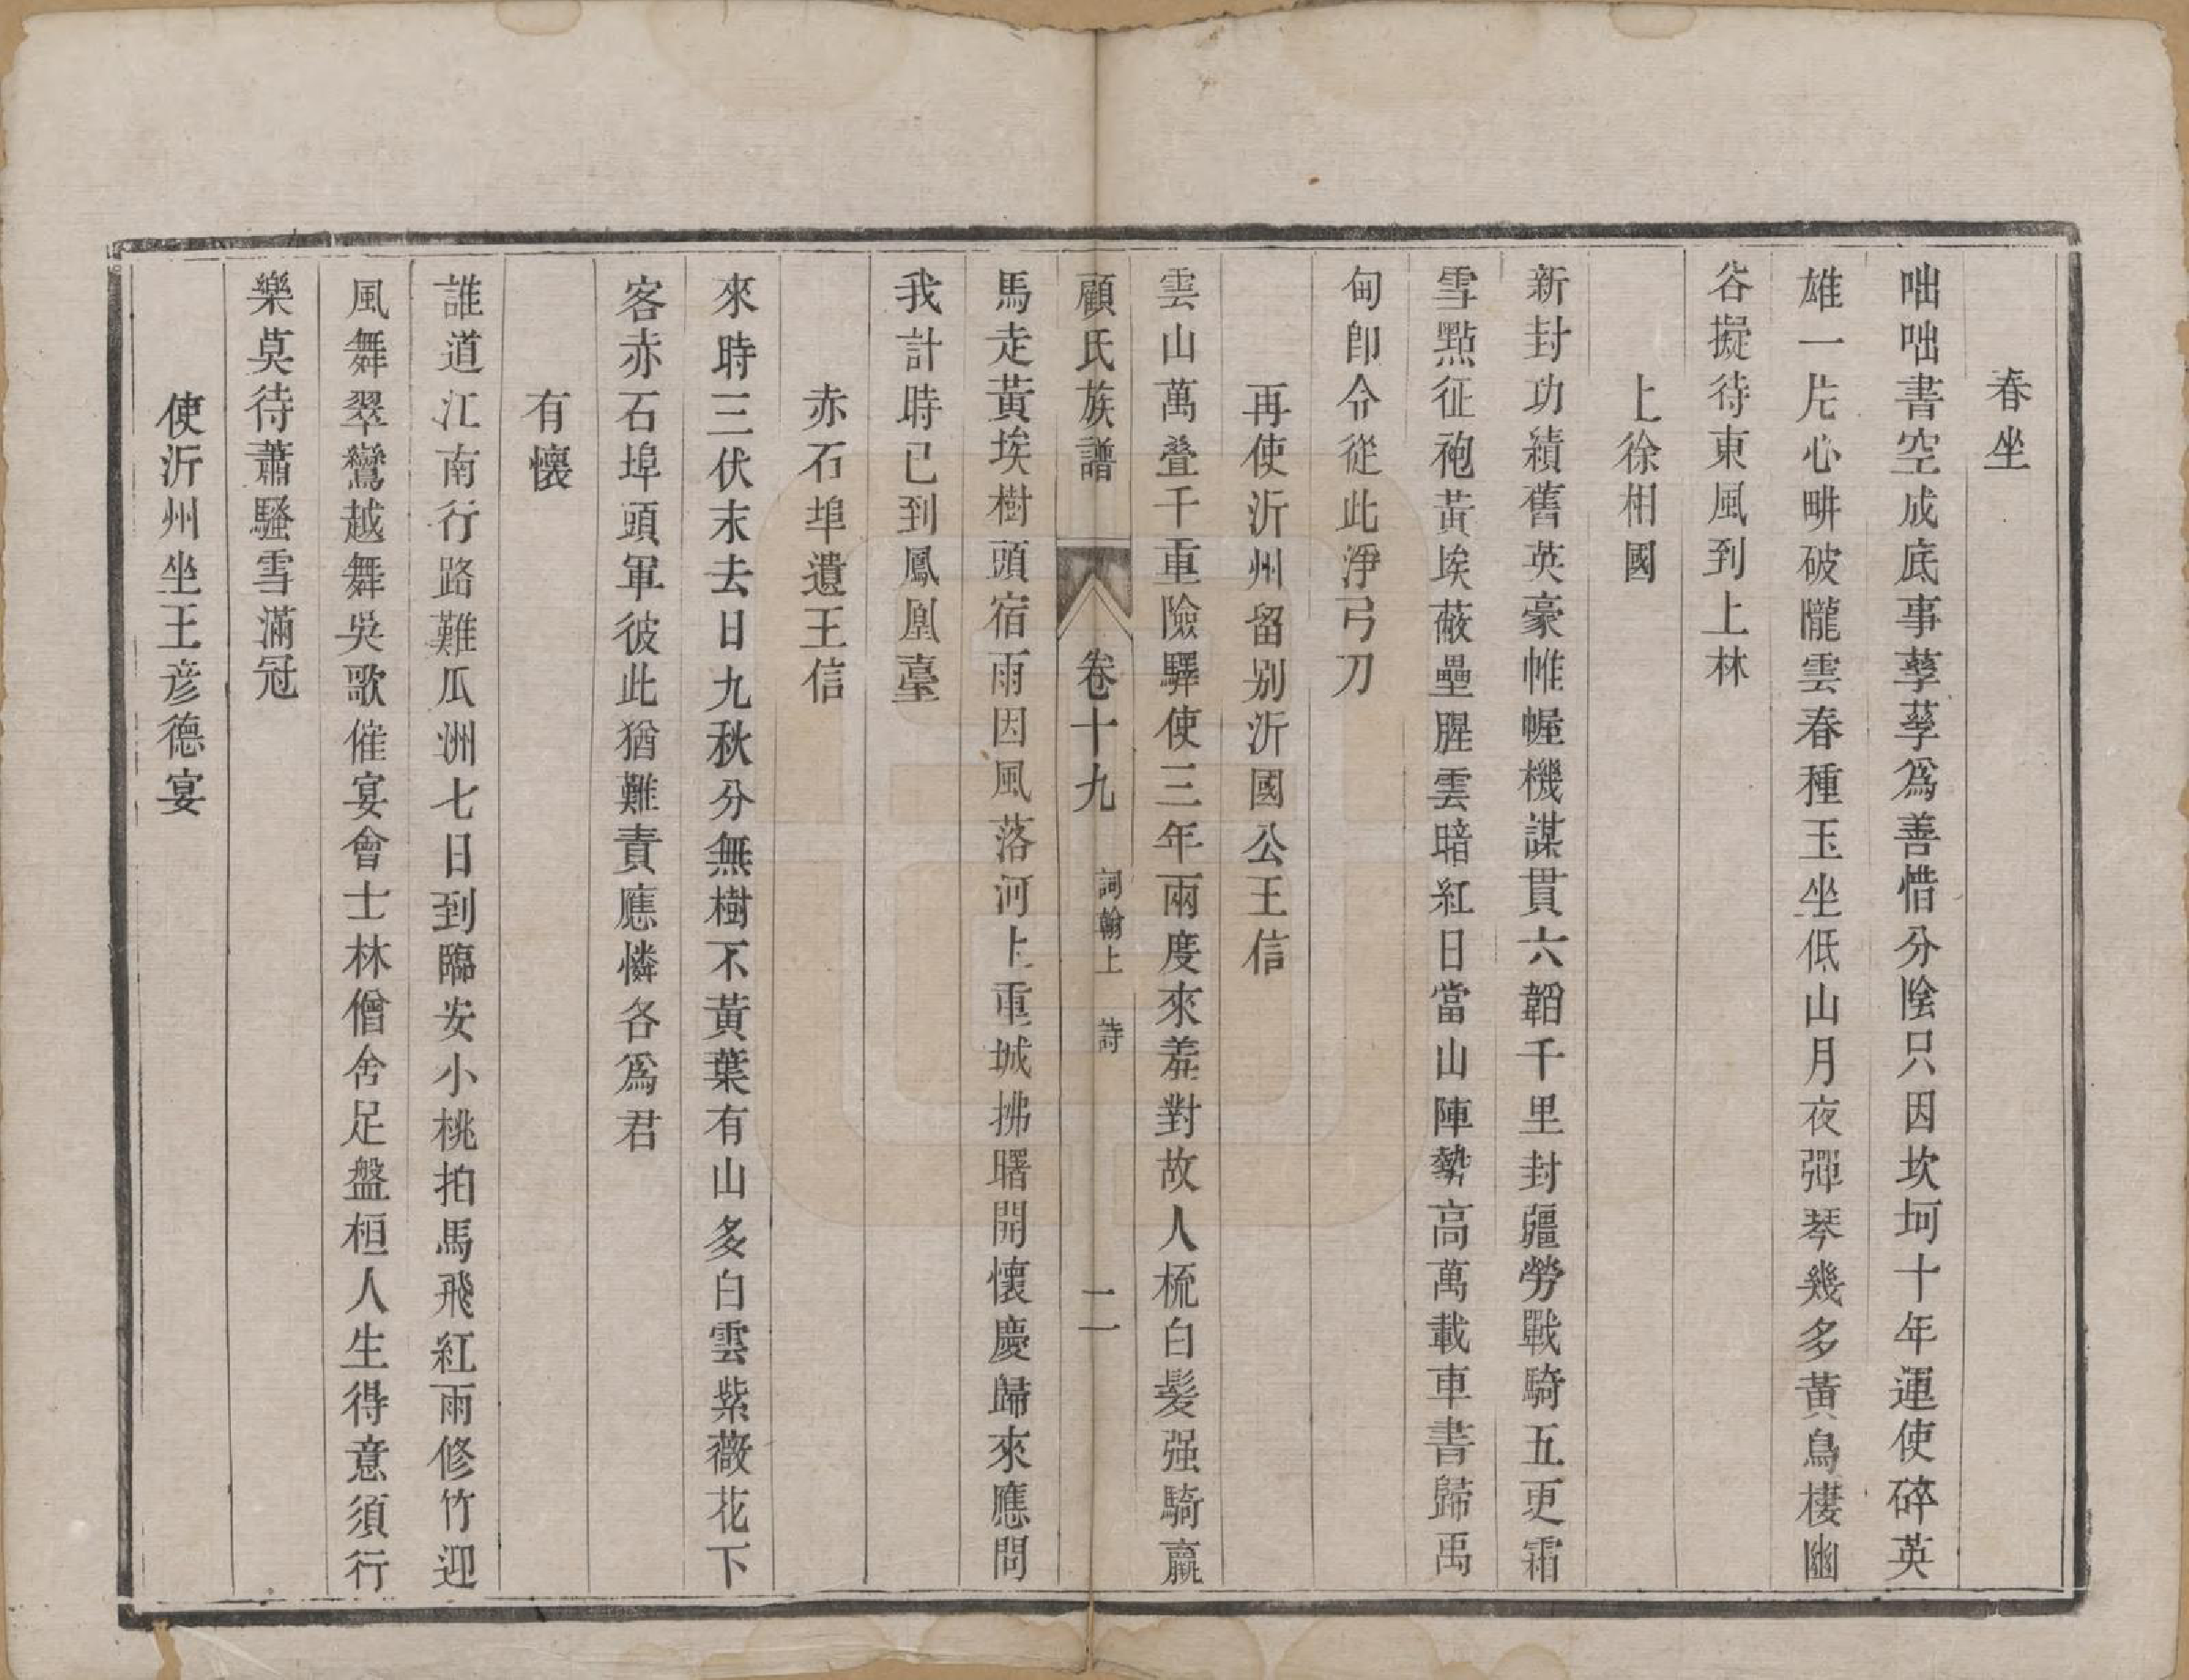 春坐
咄咄書空成底事孳孳爲善惜分陰只因坎坷十年運使碎英
雄一片心畊破隴雲春種玉坐低山月夜彈琴幾多黃鳥棲幽
谷擬待東風到上林
上徐相國
新封功績舊英豪帷幄機謀貫六韜千里封疆勞戰騎五更霜
雪點征袍黃埃蔽壘腥雲暗紅日當山陣勢高萬載車書歸禹
甸卽令從此淨弓刀
再使沂州留别沂國公王信
雲山萬叠千重險驛使三年兩度來羞對故人梳白髮强騎羸
顧氏族譜 卷十九 詞翰上 詩 二
馬走黃埃樹頭宿雨因風落河上重城拂曙開懷慶歸來應問
我計時已到鳳凰臺
赤石埠遺王信
來時三伏末去日九秋分無樹不黃葉有山多白雲紫薇花下
客赤石埠頭軍彼此猶難責應憐各爲君
有懷
誰道江南行路難瓜洲七日到臨安小桃拍馬飛紅雨修竹迎
風舞翠鸞越舞吳歌催宴會士林僧舍足盤桓人生得意須行
樂莫待蕭騷雪滿冠
使沂州坐王彦德宴